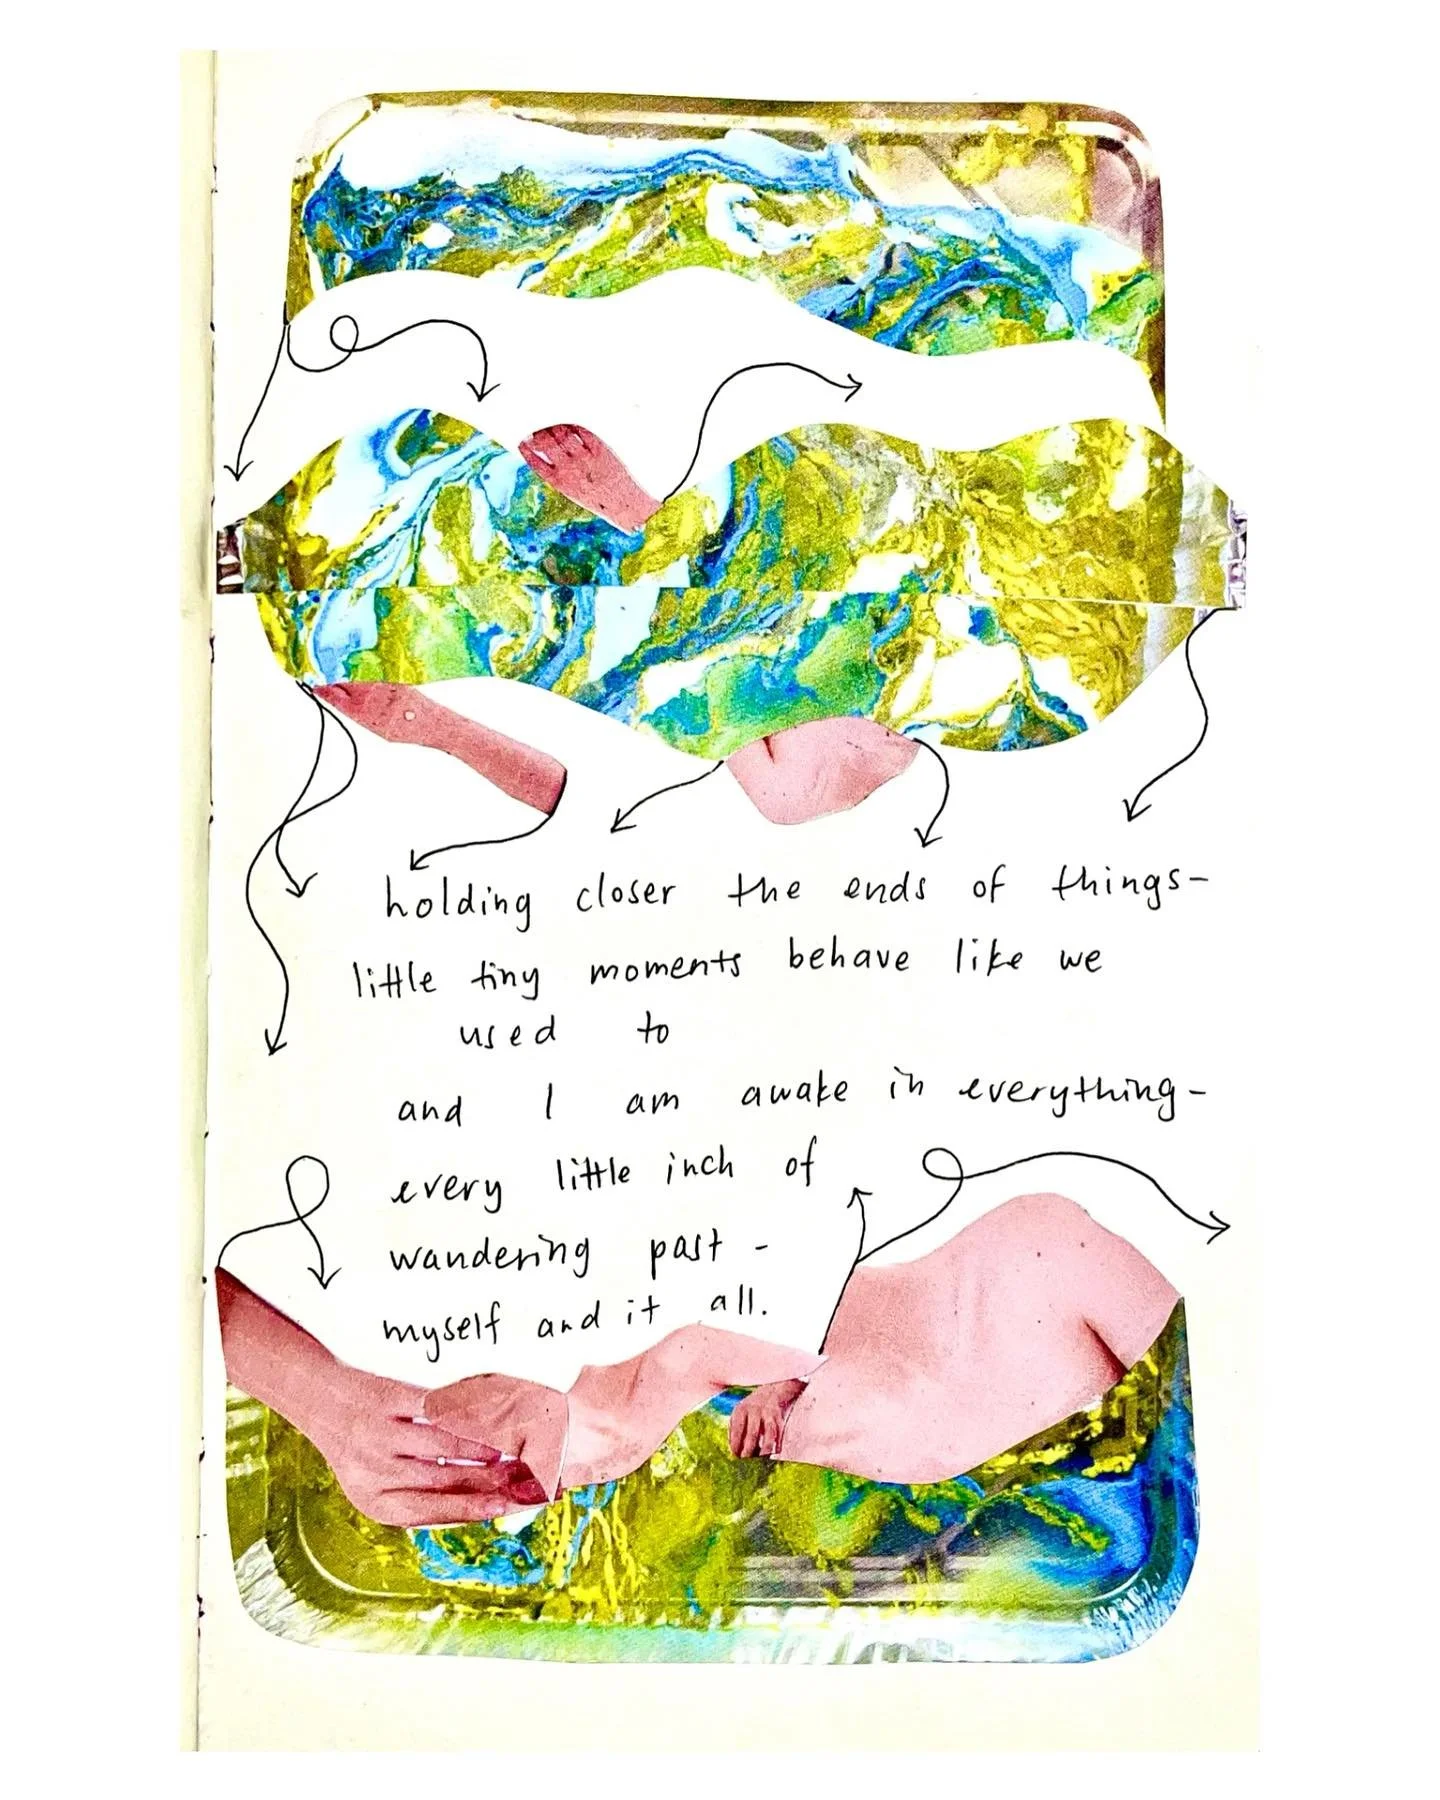 holding closer the ends of things-
little tiny moments behave like we
used to
and I am awake in everything-
every little inch of
wandering past -
myself and it all.